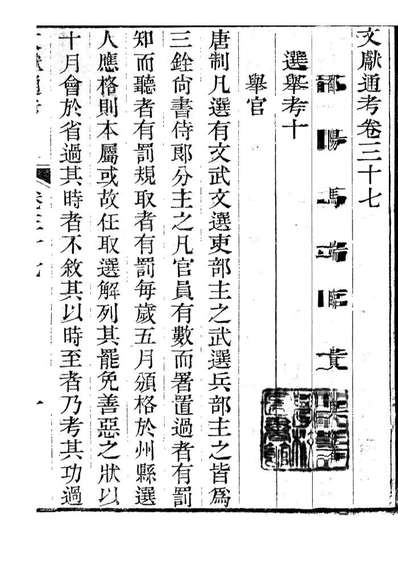 文獻通考卷三十七
鄱陽馬端臨貴
選舉考十
舉官
唐制凡選有文武文選吏部主之武選兵部主之皆爲
三銓尚書侍郎分主之凡官員有數而署置過者有罰
知而聽者有罰規取者有罰每歲五月頒格於州縣選
人應格則本屬或故任取選解列其罷免善惡之狀以
十月會於省過其時者不敘其以時至者乃考其功過
文獻通考 卷三十七 一